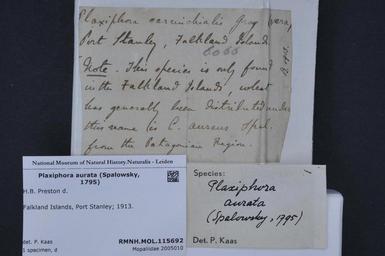 Plaxiphora carmichalis Gray
Port Stanley, Falkland Islands
6066
Note. This species is only found
in the Falkland Islands, what
has generally been distributed under
this name is C. aureus Spal.
from the Patagonian Region.
National Museum of Natural History, Naturalis - Leiden
Plaxiphora aurata (Spalowsky,
1795)
H.B. Preston d.
Falkland Islands, Port Stanley; 1913.
det. P. Kaas
1 specimen, d
RMNH.MOL.115692
Mopaliidae 2005010
Species:
Plaxiphora
aurata
(Spalowsky, 1795)
Det. P. Kaas